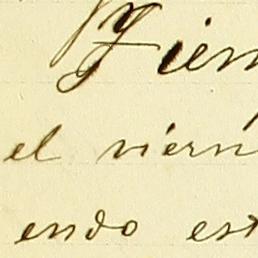 Fien
el viern
endo est